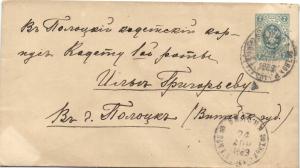 Въ Полоцкій кадетскій кор-
пусъ Кадету 1ой роты
Ильѣ Григорьеву
Въ г. Полоцкъ (Витебск. губ.)
24